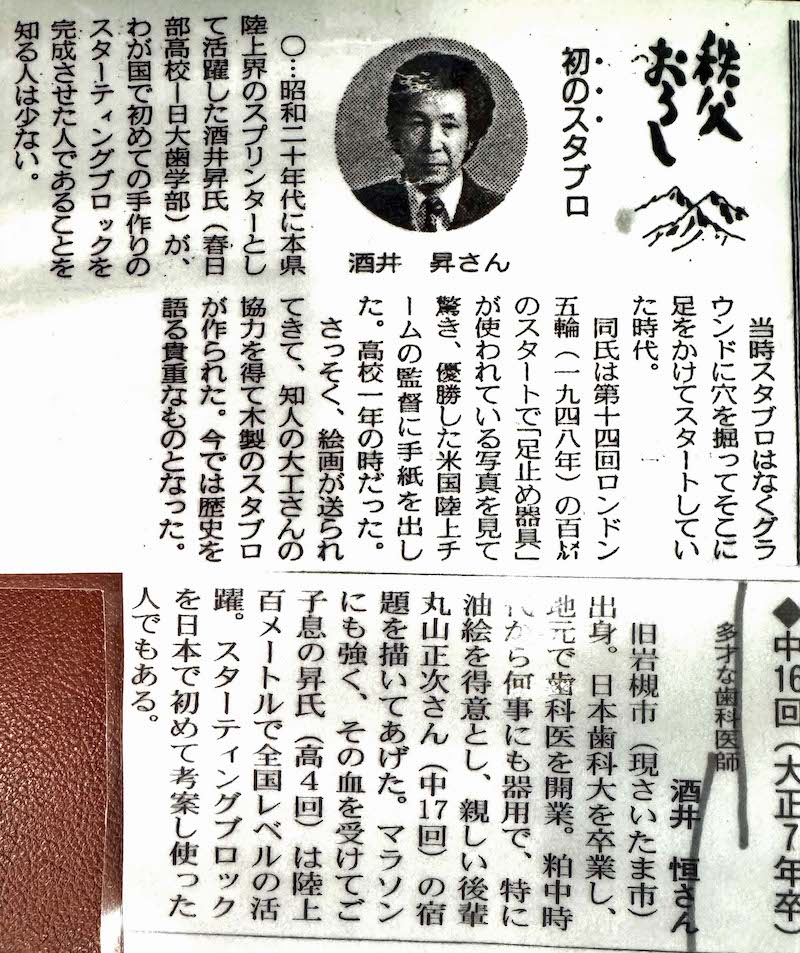 秩父
おろし
初のスタブロ
酒井　昇さん
○…昭和二十年代に本県
陸上界のスプリンターとし
て活躍した酒井昇氏（春日
部高校ー日大歯学部）が、
わが国で初めての手作りの
スターティングブロックを
完成させた人であることを
知る人は少ない。
当時スタブロはなくグラ
ウンドに穴を掘ってそこに
足をかけてスタートしてい
た時代。
同氏は第十四回ロンドン
五輪（一九四八年）の百㍍
のスタートで「足止め器具」
が使われている写真を見て
驚き、優勝した米国陸上チ
ームの監督に手紙を出し
た。高校一年の時だった。
さっそく、絵画が送られ
てきて、知人の大工さんの
協力を得て木製のスタブロ
が作られた。今では歴史を
語る貴重なものとなった。
◆中16回（大正7年卒）
多才な歯科医師
酒井　恒さん
旧岩槻市（現さいたま市）
出身。日本歯科大を卒業し、
地元で歯科医を開業。粕中時
代から何事にも器用で、特に
油絵を得意とし、親しい後輩
丸山正次さん（中17回）の宿
題を描いてあげた。マラソン
にも強く、その血を受けてご
子息の昇氏（高4回）は陸上
百メートルで全国レベルの活
躍。スターティングブロック
を日本で初めて考案し使った
人でもある。